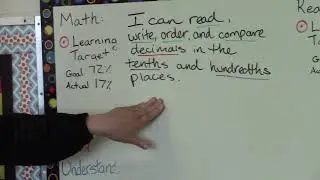 Math:
I can read,
write, order, and compare
decimals in the
tenths and hundredths
places.
Learning
Target
Goal 72%
Actual 17%
Understand
Rea